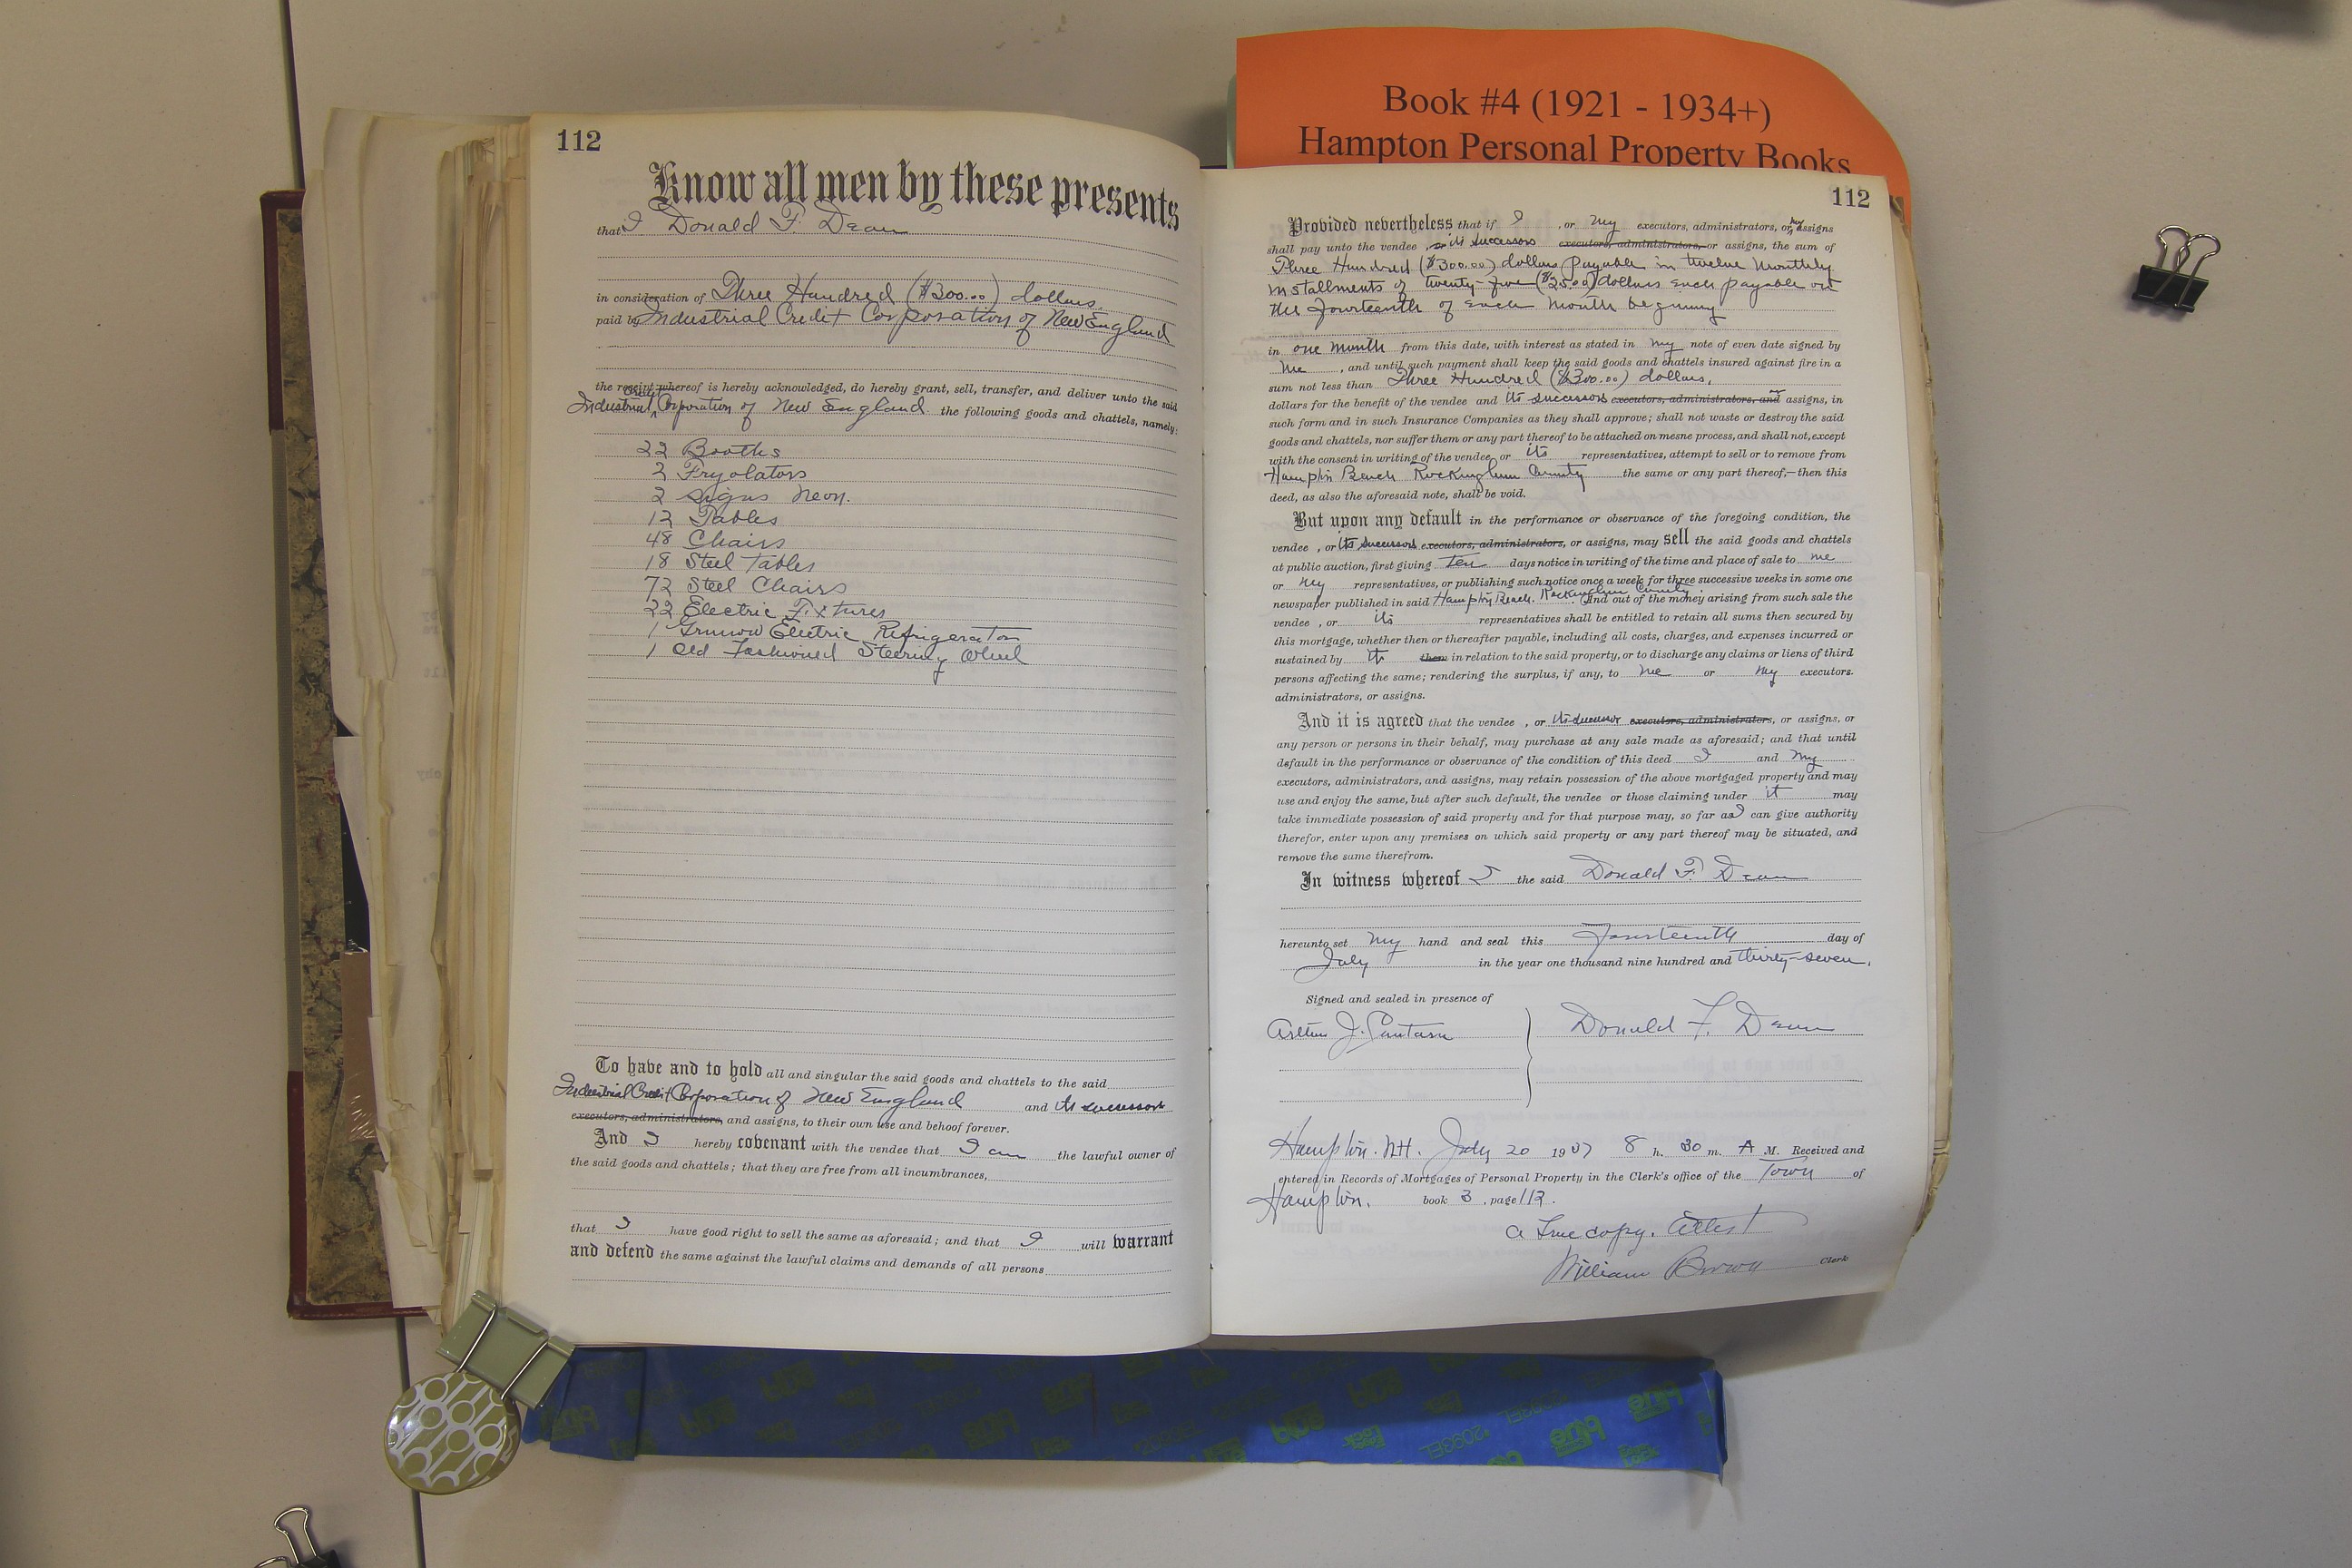 Book #4 (1921 - 1934+)
Hampton Personal Property Books
112
Know all men by these presents
that I Donald F. Dean
in consideration of Three Hundred ($300.00) dollars
paid by Industrial Credit Corporation of New England
the receipt whereof is hereby acknowledged, do hereby grant, sell, transfer, and deliver unto the said
Industrial Credit Corporation of New England the following goods and chattels, namely:
22 Booths
2 Fryolators
2 Signs Neon.
12 Tables
48 Chairs
18 Steel Tables
72 Steel Chairs
22 Electric Fixtures
1 Grunow Electric Refrigerator
1 Old Fashioned Steering Wheel
To have and to hold all and singular the said goods and chattels to the said
Industrial Credit Corporation of New England and its successors
executors, administrators, and assigns, to their own use and behoof forever.
And I hereby covenant with the vendee that I am the lawful owner of
the said goods and chattels; that they are free from all incumbrances,
that I have good right to sell the same as aforesaid; and that I will warrant
and defend the same against the lawful claims and demands of all persons
112
Provided nevertheless that if I , or my executors, administrators, or my assigns
shall pay unto the vendee , or its successors executors, administrators, or assigns, the sum of
Three Hundred ($300.00) dollars payable in twelve monthly
installments of twenty-five ($25.00) dollars each payable on
the fourteenth of each month beginning
in one month from this date, with interest as stated in my note of even date signed by
me , and until such payment shall keep the said goods and chattels insured against fire in a
sum not less than Three Hundred ($300.00) dollars,
dollars for the benefit of the vendee and its successors executors, administrators, and or assigns, in
such form and in such Insurance Companies as they shall approve; shall not waste or destroy the said
goods and chattels, nor suffer them or any part thereof to be attached on mesne process, and shall not, except
with the consent in writing of the vendee or its representatives, attempt to sell or to remove from
Hampton Beach Rockingham County the same or any part thereof,—then this
deed, as also the aforesaid note, shall be void.
But upon any default in the performance or observance of the foregoing condition, the
vendee , or its successors executors, administrators, or assigns, may sell the said goods and chattels
at public auction, first giving ten days notice in writing of the time and place of sale to me
or my representatives, or publishing such notice once a week for three successive weeks in some one
newspaper published in said Hampton Beach. Rockingham County. And out of the money arising from such sale the
vendee , or its representatives shall be entitled to retain all sums then secured by
this mortgage, whether then or thereafter payable, including all costs, charges, and expenses incurred or
sustained by it them in relation to the said property, or to discharge any claims or liens of third
persons affecting the same; rendering the surplus, if any, to me or my executors.
administrators, or assigns.
And it is agreed that the vendee , or its successor executors, administrators, or assigns, or
any person or persons in their behalf, may purchase at any sale made as aforesaid; and that until
default in the performance or observance of the condition of this deed I and my
executors, administrators, and assigns, may retain possession of the above mortgaged property and may
use and enjoy the same, but after such default, the vendee or those claiming under it may
take immediate possession of said property and for that purpose may, so far as I can give authority
therefor, enter upon any premises on which said property or any part thereof may be situated, and
remove the same therefrom.
In witness whereof I the said Donald F. Dean
hereunto set my hand and seal this Fourteenth day of
July in the year one thousand nine hundred and thirty-seven.
Signed and sealed in presence of
Arthur J.
Donald F. Dean
Hampton. N.H. July 20 1937 8 h. 30 m. A M. Received and
entered in Records of Mortgages of Personal Property in the Clerk's office of the Town of
Hampton. book 3 , page 112.
A True copy. Attest
William Brown Clerk